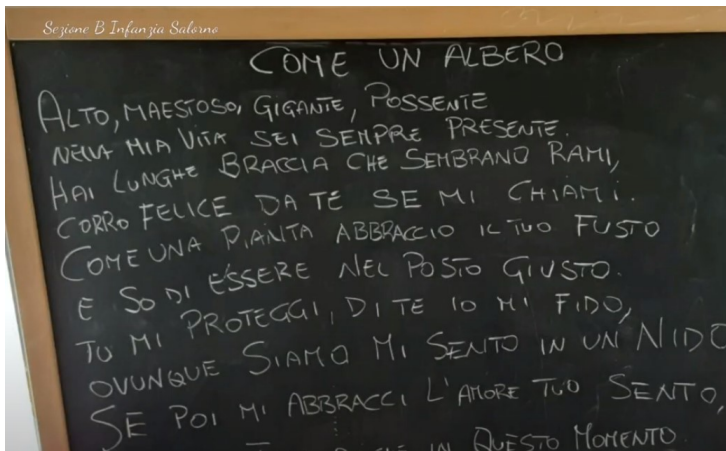 Sezione B Infanzia Salorno
COME UN ALBERO
ALTO, MAESTOSO, GIGANTE, POSSENTE
NELLA MIA VITA SEI SEMPRE PRESENTE.
HAI LUNGHE BRACCIA CHE SEMBRANO RAMI,
CORRO FELICE DA TE SE MI CHIAMI.
COME UNA PIANTA ABBRACCIO IL TUO FUSTO
E SO DI ESSERE NEL POSTO GIUSTO.
TU MI PROTEGGI, DI TE IO MI FIDO,
OVUNQUE SIAMO MI SENTO IN UN NIDO
SE POI MI ABBRACCI L'AMORE TUO SENTO,
IN QUESTO MOMENTO